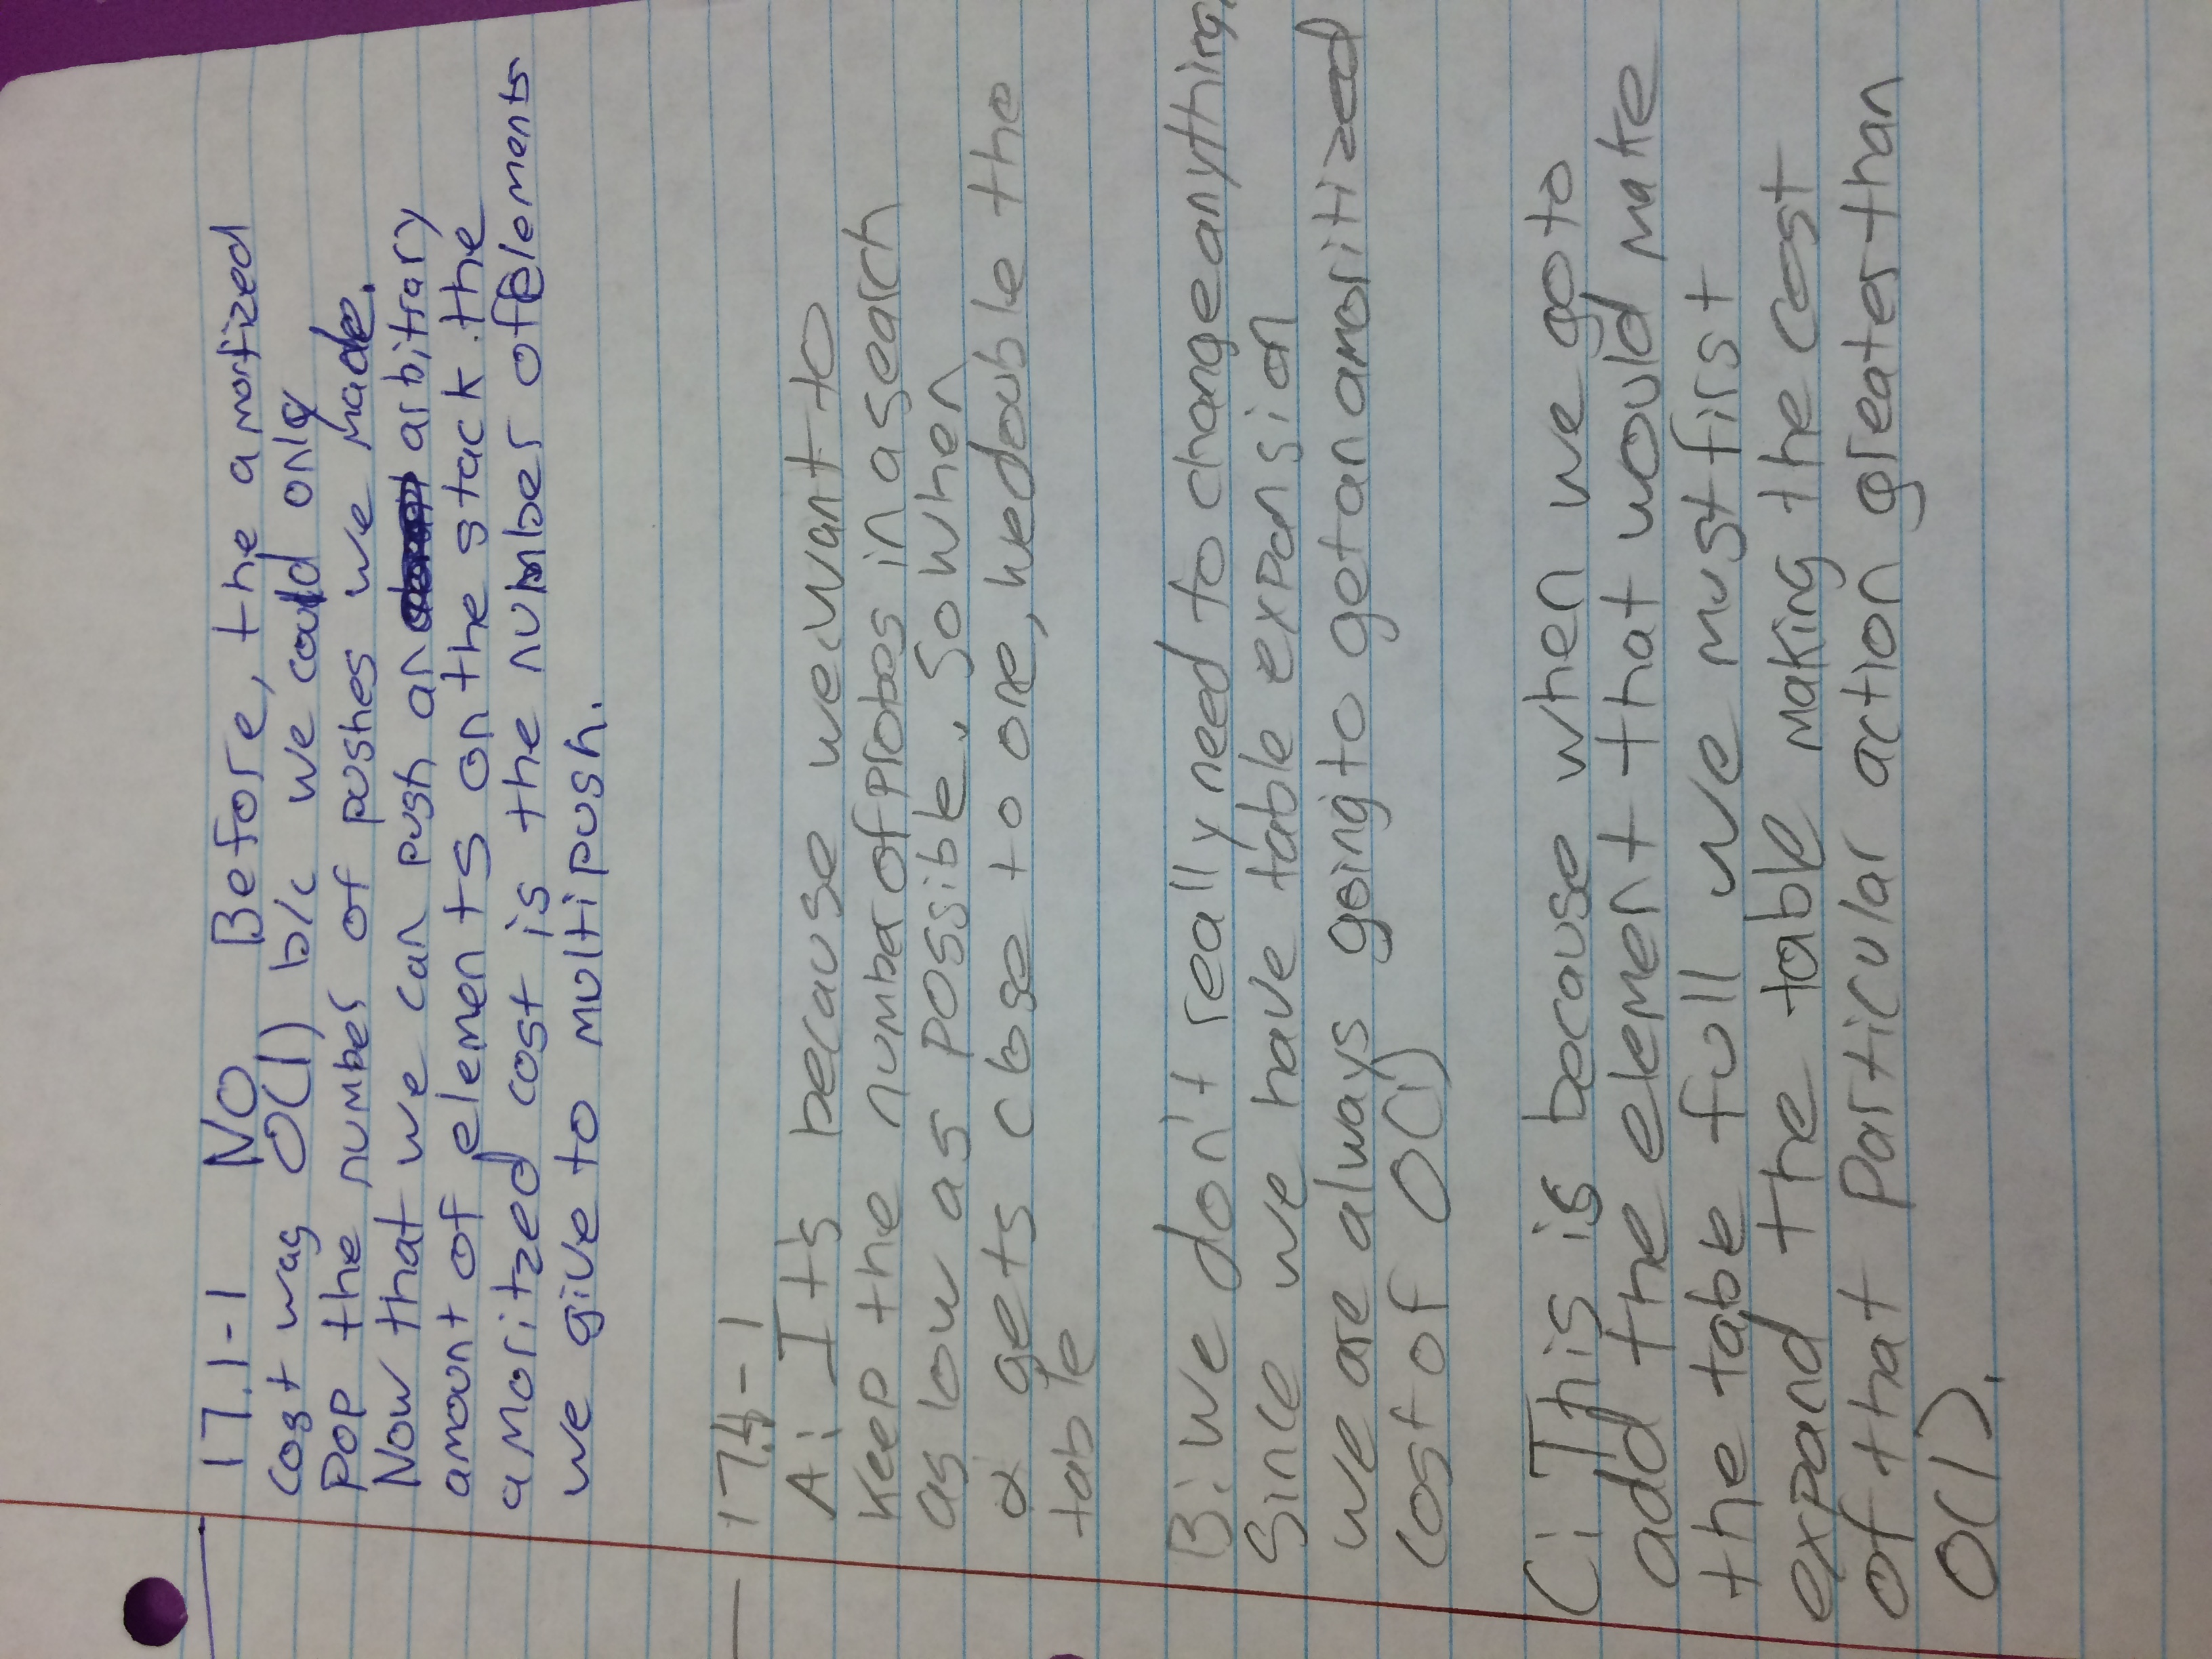 17.1-1 No. Before, the amortized
cost was O(1) b/c we could only
pop the number of pushes we made.
Now that we can push an arbitrary
amount of elements on the stack the
amoritzed cost is the number of elements
we give to multipush.
17.4-1
A: It's because we want to
keep the number of probes in a search
as low as possible. So when
α gets close to one, we double the
table
B: We don't really need to change anything.
Since we have table expansion
we are always going to get an amoritized
cost of O(1)
C: This is because when we go to
add the element that would make
the table full we must first
expand the table making the cost
of that particular action greater than
O(1).